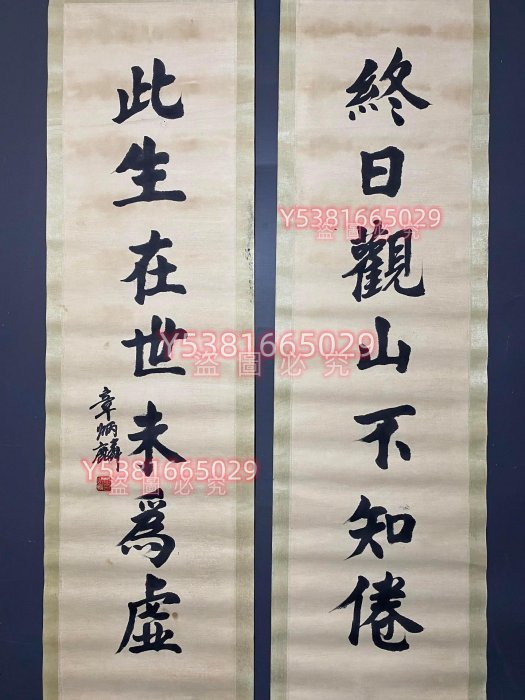 終日觀山不知倦
此生在世未為虛
章炳麟
Y5381665029
盜圖必究
Y5381665029
盜圖必究
Y5381665029
盜圖必究